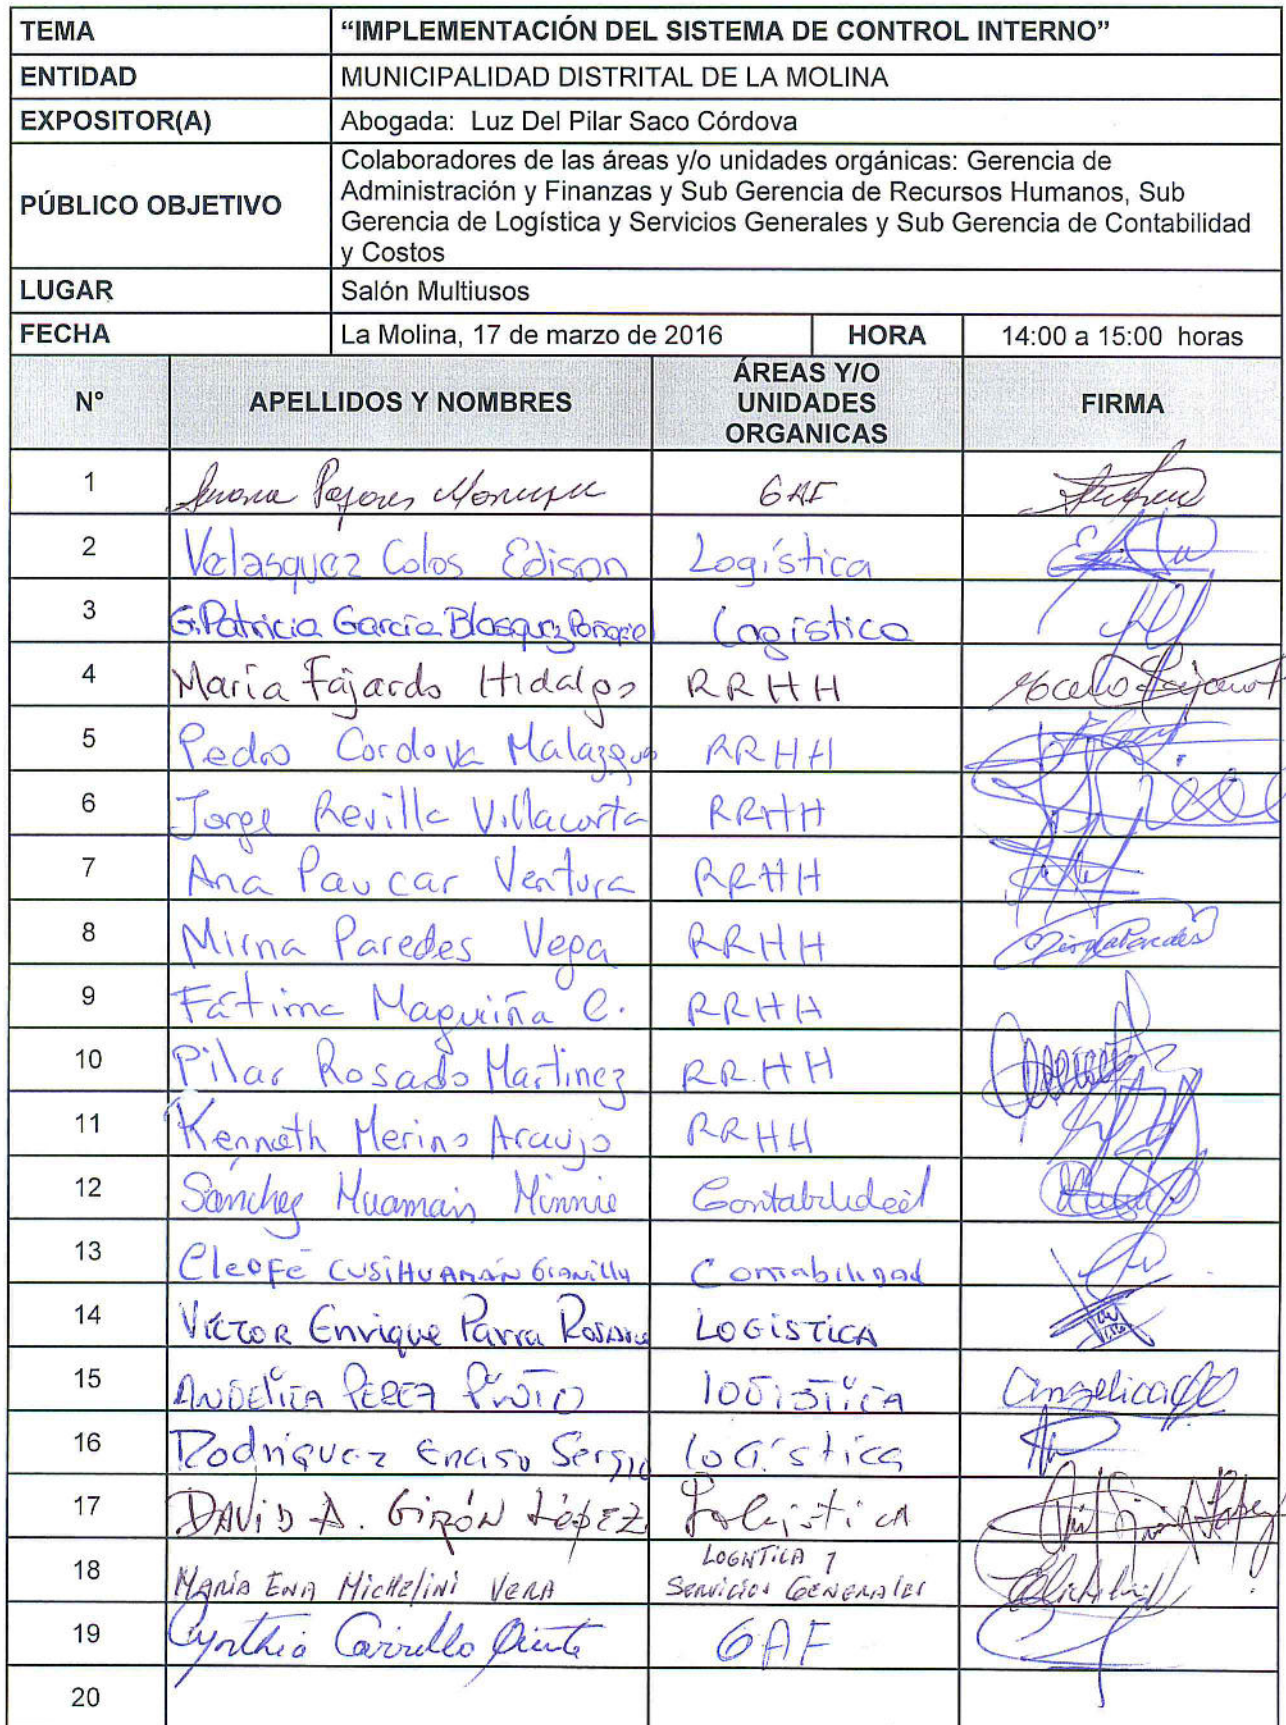 TEMA "IMPLEMENTACIÓN DEL SISTEMA DE CONTROL INTERNO"
ENTIDAD MUNICIPALIDAD DISTRITAL DE LA MOLINA
EXPOSITOR(A) Abogada: Luz Del Pilar Saco Córdova
PÚBLICO OBJETIVO Colaboradores de las áreas y/o unidades orgánicas: Gerencia de
Administración y Finanzas y Sub Gerencia de Recursos Humanos, Sub
Gerencia de Logística y Servicios Generales y Sub Gerencia de Contabilidad
y Costos
LUGAR Salón Multiusos
FECHA La Molina, 17 de marzo de 2016 HORA 14:00 a 15:00 horas
N° APELLIDOS Y NOMBRES ÁREAS Y/O
UNIDADES
ORGANICAS FIRMA
1 GAF
2 Velasquez Colos Edison Logística
3 G. Patricia García Blasquez Logistica
4 María Fajardo Hidalgo RRHH
5 Pedro Cordova RRHH
6 Jorge Revilla Villacorta RRHH
7 Ana Paucar Ventura RRHH
8 Mirna Paredes Vega RRHH Mirna Paredes
9 Fátima Maguiña C. RRHH
10 Pilar Rosado Martinez RR.HH
11 Kenneth Merino Araujo RRHH
12 Sánchez Huamán Minnie Contabilidad
13 Cleofé CUSIHUAMÁN Contabilidad
14 VICTOR Enrique Parra LOGISTICA
15 ANGELICA PEREZ PINTO logistica Angelica
16 Rodriguez Enciso Sergio logística
17 DAVID A. GIRÓN LÓPEZ Logistica
18 MARÍA ENA MICHELINI VERA LOGISTICA Y
SERVICIOS GENERALES
19 Cynthia Carrillo GAF
20